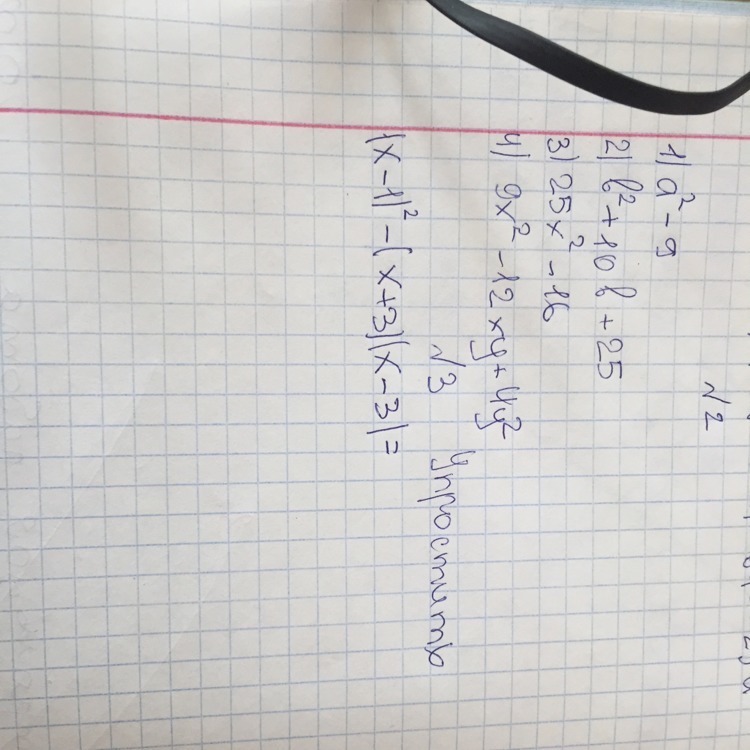 √2
1) a² - 9
2) b² + 10b + 25
3) 25x² - 16
4) 9x² - 12xy + 4y²
√3 Упростить
(x - 1)² - (x + 3)(x - 3) =